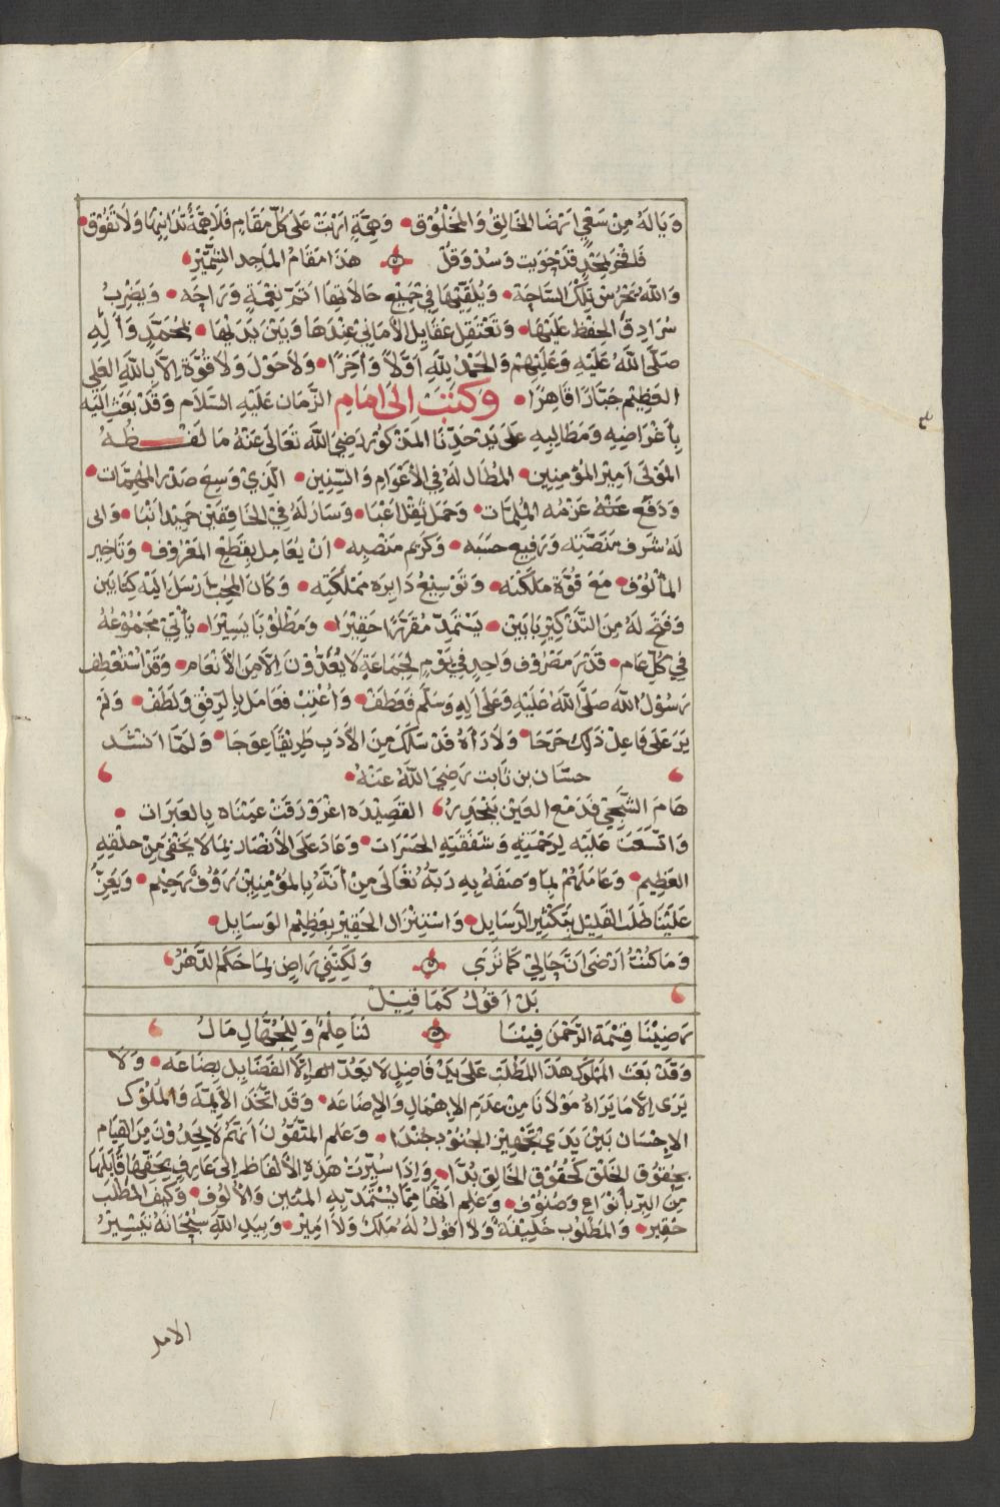 وَيَالَهُ مِنْ سَعْيٍ اَرْضَا الخَالِقُ وَالمَخْلُوْق • وَهِمَّةٍ اَرْبَتْ عَلَى كُلِّ مَقَامٍ فَلَا هِمَّةٌ تُدَانِيْهَا وَلَا تَفُوْق •
فَلَا فَخْرَ لِمَجْدٍ قَدْ حَوَيت وَسُدْ وَقُلْ هَذَا مَقَامُ المَاجِدِ
وَاللهُ يَحْرُسُ تِلْكَ السَّاحَة • وَيُلَقِّيْهَا فِيْ جَمِيْعِ حَالَاتِهَا اَتَمَّ نِعْمَةٍ وَرَاحَه • وَيَضْرِبُ
سُرَادِقَ الحِفْظِ عَلَيْهَا • وَتَعْتَقِلِ عَقَايِلِ الأَمَانِيْ عِنْدَهَا وَبَيْنَ يَدَيْهَا • بِمُحَمَّدٍ وَآلِهِ
صَلَّى اللهُ عَلَيْهِ وَعَلَيْهِمْ وَالحَمْدُ لِلَّهِ اَوَّلاً وَآخِرًا • وَلَا حَوْلَ وَلَا قُوَّةَ اِلَّا بِاللهِ العَلِي
العَظِيْم جَبَّارًا قَاهِرًا • وَكَتَبَ اِلَى اِمَامِ الزَّمَان عَلَيْهِ السَّلَام وَقَدْ بَعَثَ اِلَيْه
بِأَغْرَاضِهِ وَمَطَالِبِهِ عَلَى يَدِ جَدِّنَا المَذْكُوْر رَضِيَ اللَّه تَعَالَى عَنْهُ مَا لَفْظُهُ
المَوْلَى اَمِيْر المُؤْمِنِين • المُطَال لَهُ فِي الأَعْوَامِ وَالسِّنِين • الَّذِيْ وَسِعَ صَدْرَ المُهِمَّات •
وَدَفَعَ عَنْهُ عَزْمُه المُلِمَّات • وَحَمَلَ ثِقْلَ اعْبَا • وَسَارَ لَهُ فِيْ الخَافِقَيْن حَمِيْدِ انْبَا • وَابى
لَهُ شَرَف مَنْصِبِه وَرَفِيع حَسَبَه • وَكَرِيم مَنْصِبِه • اَنْ يُعَامِل بِقَطْعِ المَعْرُوْف • وَتَاخِير
المأْلُوْف • مَعَ قُوَّة مَلَكَتِه • وَتَوْسِيْع دَايِرَه مَمْلَكَتِه • وَكَانَ المُحِبُّ اَرْسَلَ اِلَيْه كِتَابَيْن
وَفَتَحَ لَهُ مِنَ التَّذْكِيْرِ بَابَيْن • يَسْتَمِدّ مُقَرَّرًا حَقِيْرًا • وَمَطْلُوْبًا يَسِيْرًا • يَأْتِيْ مَجْمُوْعُهُ
فِيْ كُلِّ عَام • قَدْرَ مَصْرُوْف وَاحِدٍ فِيْ يَوْمٍ لِجَمَاعَةٍ لَا يُعَدُّوْنَ اِلَّا مِنَ الأَنْعَام • وَقَدْ اسْتُعْطِفَ
رَسُوْلُ الله صَلَّى اللهُ عَلَيْهِ وَعَلَى آلِهِ وَسَلَّم فَعَطَف • وَاُعْتِبْ فَعَامَل بِالرِّفْقِ وَلَطَفْ • وَلَمْ
يَرَ عَلَى فَاعِلِ ذَلِكَ حَرَجًا • وَلَا رَآهُ قَدْ سَلَكَ مِنَ الأَدَبِ طَرِيْقًا عِوَجًا • وَلَمَّا انْشَدَ
حسَّان بن ثَابت رَضِيَ اللهُ عَنْهُ •
هَامَ الشَّجِيْ فَدَمْعُ العَيْن يَنْحَدِرُ القَصِيْدَه اغْرَوْرَقَتْ عَيْنَاه بِالعَبَرَات •
وَاتَّسَعَتْ عَلَيْه لِرَحْمَتِهِ وَشَفَقَتِهِ الحَسَرَات • وَعَادَ عَلَى الأَنْصَار بِمَا لَا يَخْفَى مِنْ خلْقِهِ
العَظِيم • وَعَامَلَهُمْ بِمَا وَصَفَهُ بِهِ رَبّهُ تَعَالَى مِنْ اَنَّهُ بِالمؤْمِنِيْن رَؤُوفٌ رَحِيْم • وَيَعِزُّ
عَلَيْنَا طَلَبَ القَلِيْل بِتَكْثِيْرِ الرَّسَايِل • وَاسْتِنْزَال الحَقِيْر بِعَظِيْم الوَسَايِل •
وَمَا كُنْتُ اَرْضَى اَنَّ حَالِيْ كَمَا تَرَى وَلَكِنَّنِي رَاضٍ بِمَا حَكَمَ الدَّهْرُ
بَلْ اَقُوْلُ كَمَا قِيْلَ
رَضِيْنَا قِسْمَةَ الرَّحْمَن فِيْنَا لَنَا عِلْمٌ وَلِلْجُهَّالِ مَالُ
وَقَدْ بَعَثَ المَمْلُوكُ هَذَا المَطْلَب عَلَى يَدِ فَاضِلٍ لَا يَعُدّ اِلَّا الفَضَايِل بِضَاعَه • وَلَا
يَرَى اِلَّا مَا يَرَاهُ مَوْلَانَا مِنْ عَدَمِ الاِهْمَالِ وَالاِضَاعَه • وَقَد اتَّخَذَ الأَئِمَّه وَالمُلُوْك
الاِحْسَان بَيْنَ يَدَيْ تَجْهِيْزِ الجُنُوْدِ جُنْدًا • وَعَلِم المتَّقُوْنَ اَنَّهُمْ لَا يَجِدُوْنَ مِنَ القِيَام
بِحُقُوْقِ الخَلْقِ كَحُقُوْقِ الخَالِقِ بُدًّا • وَاِذَا سُيِّرَتْ هَذِهِ الأَلْفَاظ اِلَى عَارِفٍ بِحَقِّهَا قَابَلَهَا
مِنَ البِرِّ بأَنْوَاعٍ وَصُنُوْف • وَعَلِم اَنَّهَا مِمَّا يُسْتَمَدّ بِهِ المئين وَالأُلُوْف • وَكَيْفَ المَطْلَب
حَقِير • وَالمَطْلُوْب خَلِيْفَةٌ وَلَا اَقُوْلُ لَهُ مَلِكٌ وَلَا اَمِيْرٌ • وَبِيَدِ اللهِ سُبْحَانَهُ تَيْسِيْرُ
الامر